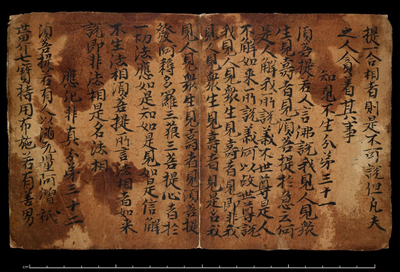 提一合相者則是不可說但凡夫
之人貪著其事
知見不生分弟三十一
須菩提若人言佛說我見人見眾
生見壽者見須菩提於意云何
是人解我所說義不世尊是人
不解如來所說義何以故世尊說
我見人見眾生見壽者見即非我
見人見眾生見壽者見是名我
見人見眾生見壽者見須菩提
發阿耨多羅三藐三菩提心者於
一切法應如是知如是見如是信解
不生法相須菩提所言法相者如來
說即非法相是名法相
應化非真分弟三十二
須菩提若有人以滿无量阿僧祇
世界七寶持用布施若有善男